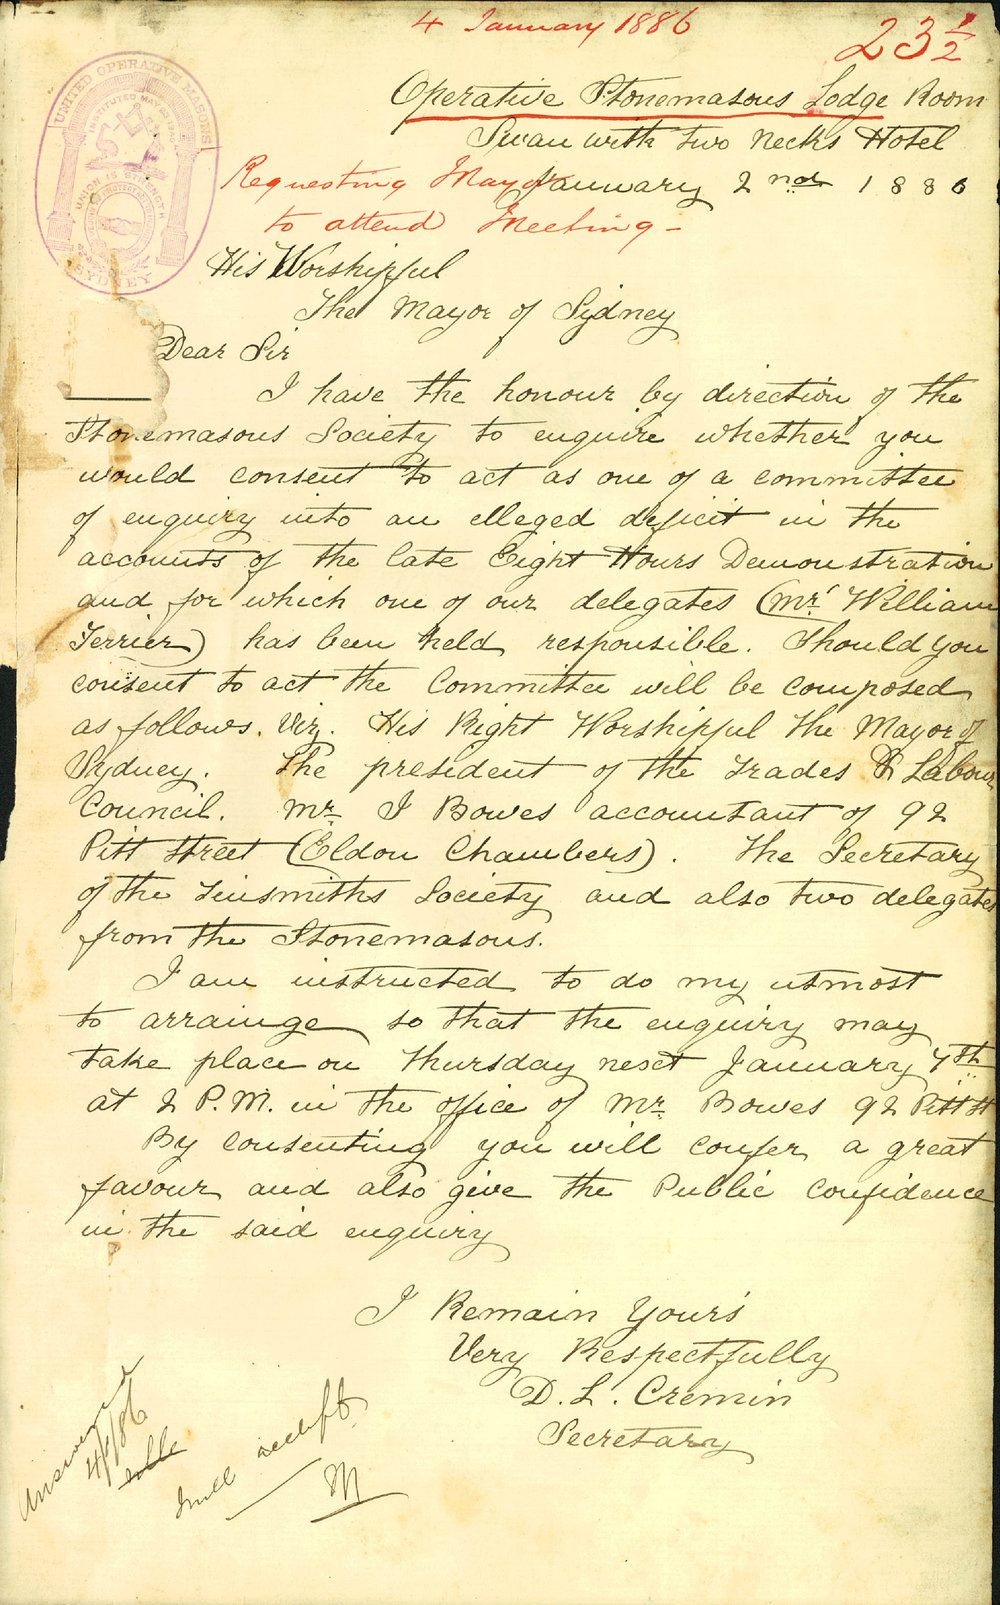 4 January 1886
23 1/2
UNITED OPERATIVE MASONS
UNION IS STRENGTH
SYDNEY
Operative Stonemasons Lodge Room
Swan with two Necks Hotel
Requesting Mayor January 2nd 1886
to attend Meeting -
His Worshipful
The Mayor of Sydney
Dear Sir
I have the honour by direction of the
Stonemasons Society to enquire whether you
would consent to act as one of a committee
of enquiry into an elleged deficit in the
accounts of the late Eight Hours Demonstration
and for which one of our delegates (Mr William
Terrier) has been held responsible. Should you
consent to act the Committee will be composed
as follows. Viz. His Right Worshipful the Mayor of
Sydney. The president of the Trades & Labour
Council. Mr. J Bowes accountant of 92
Pitt Street (Eldon Chambers). The Secretary
of the Tinsmiths Society and also two delegates
from the Stonemasons.
I am instructed to do my utmost
to arrainge so that the enquiry may
take place on Thursday next January 7th
at 2 P.M. in the office of Mr Bowes 92 Pitt St
By consenting you will confer a great
favour and also give the Public confidence
in the said enquiry
I Remain Yours
Very Respectfully
D. L. Cremin
Secretary
Answered
4/1/86
M